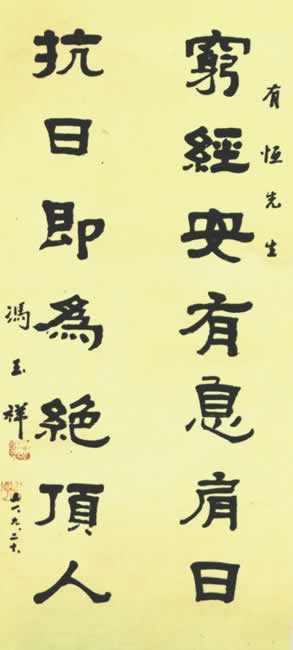 有恒先生
窮經安有息肩日
抗日即為絕頂人
馮玉祥
九、二十、